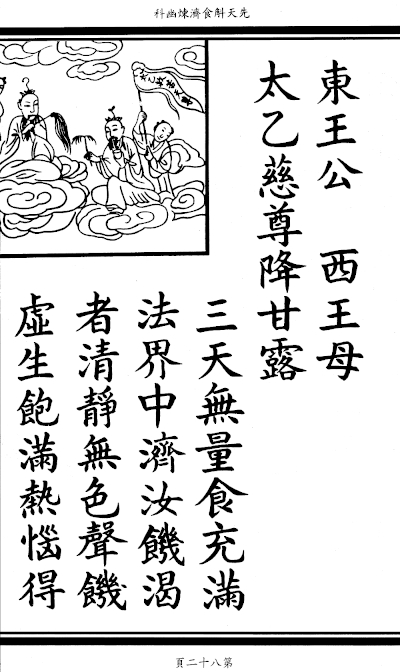 先天斛食濟煉幽科
東王公　西王母
太乙慈尊降甘露
三天無量食充滿
法界中濟汝饑渴
者清靜無色聲饑
虛生飽滿熱惱得
第八十二頁